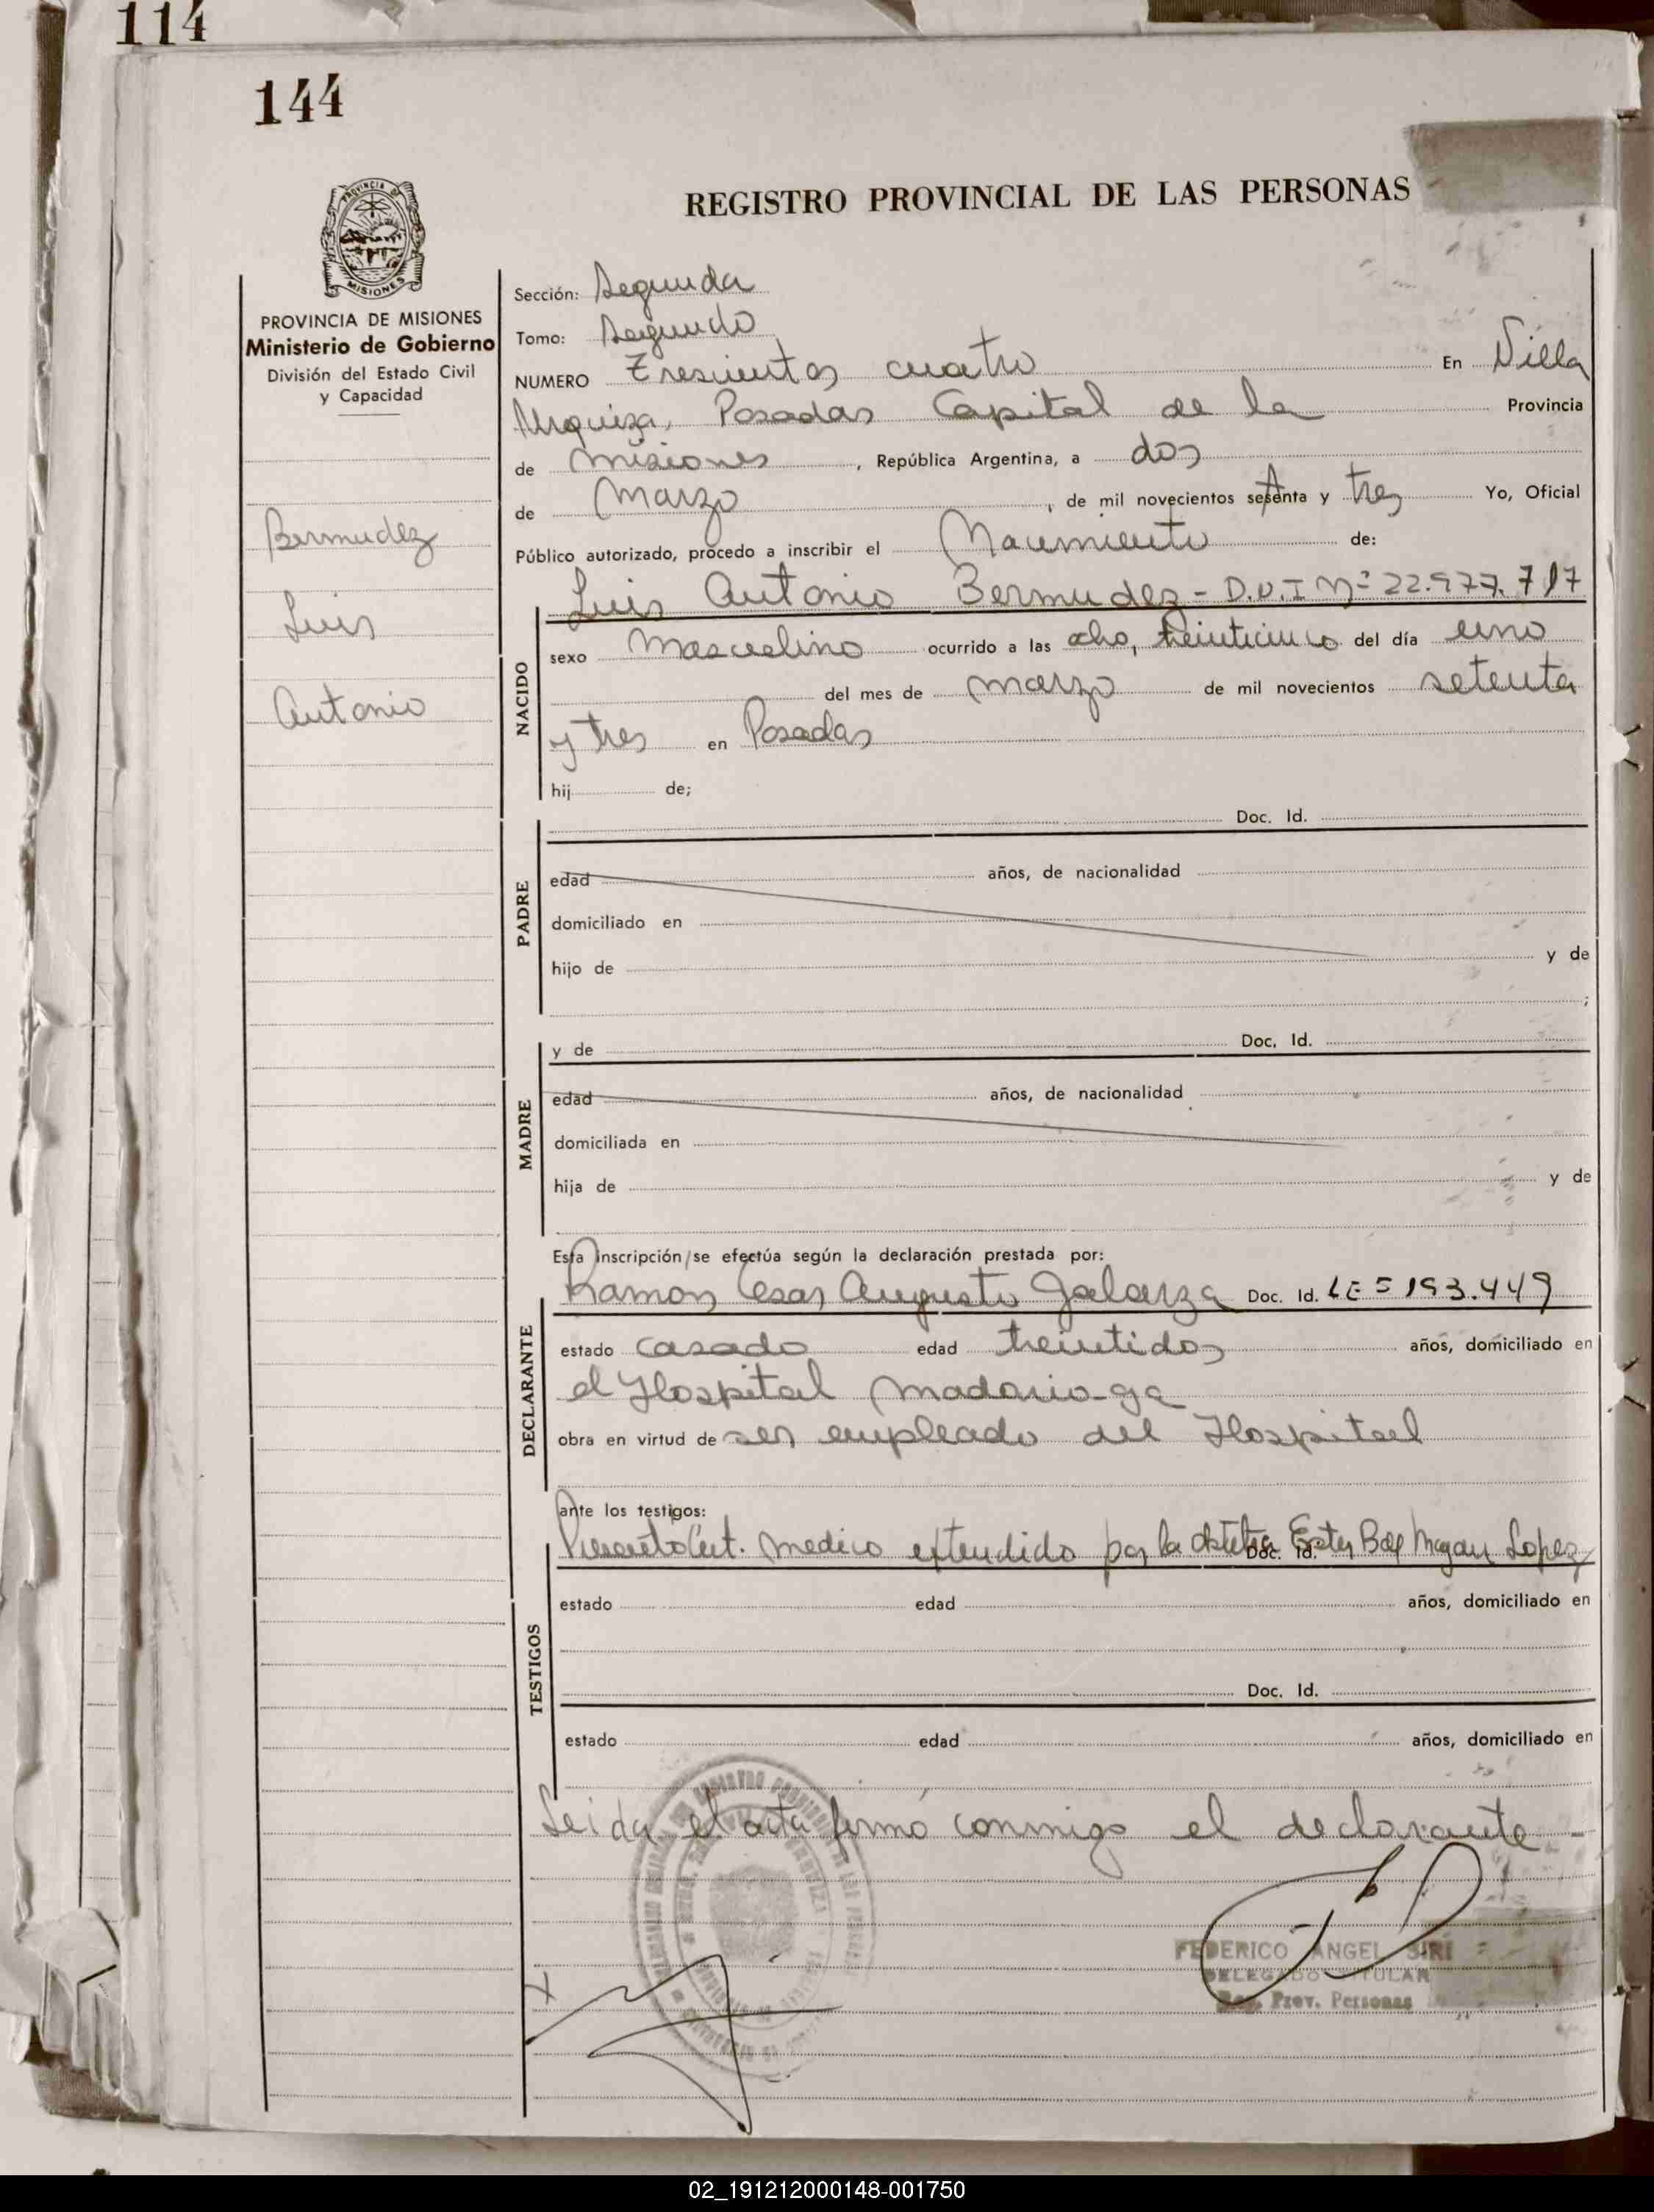 114
144
PROVINCIA DE MISIONES
REGISTRO PROVINCIAL DE LAS PERSONAS
PROVINCIA DE MISIONES
Ministerio de Gobierno
División del Estado Civil
y Capacidad
Bermudez
Luis
Antonio
Sección: Segunda
Tomo: Segundo
NUMERO Trescientos cuatro En Villa
Urquiza, Posadas Capital de la Provincia
de Misiones, República Argentina, a dos
de Marzo, de mil novecientos setenta y tres Yo, Oficial
Público autorizado, procedo a inscribir el Nacimiento de:
Luis Antonio Bermudez - D.N.I Nº 22.977.717
NACIDO
sexo Masculino ocurrido a las ocho, treinticinco del día uno
del mes de marzo de mil novecientos setenta
y tres en Posadas
hij de;
Doc. Id.
PADRE
edad años, de nacionalidad
domiciliado en
hijo de y de
;
y de Doc. Id.
MADRE
edad años, de nacionalidad
domiciliada en
hija de y de
Esta inscripción se efectúa según la declaración prestada por:
Ramon Cesar Augusto Galarza Doc. Id. LE 5193.449
DECLARANTE
estado casado edad treintidos años, domiciliado en
el Hospital Madariaga
obra en virtud de ser empleado del Hospital
ante los testigos:
Presento Cert. medico extendido por la obstetra Ester Doc. Id. Lopez
TESTIGOS
estado edad años, domiciliado en
Doc. Id.
estado edad años, domiciliado en
Leida el acta firmó conmigo el declarante -
FEDERICO ANGEL SIRI
DELEGADO TITULAR
Reg. Prov. Personas
02_191212000148-001750